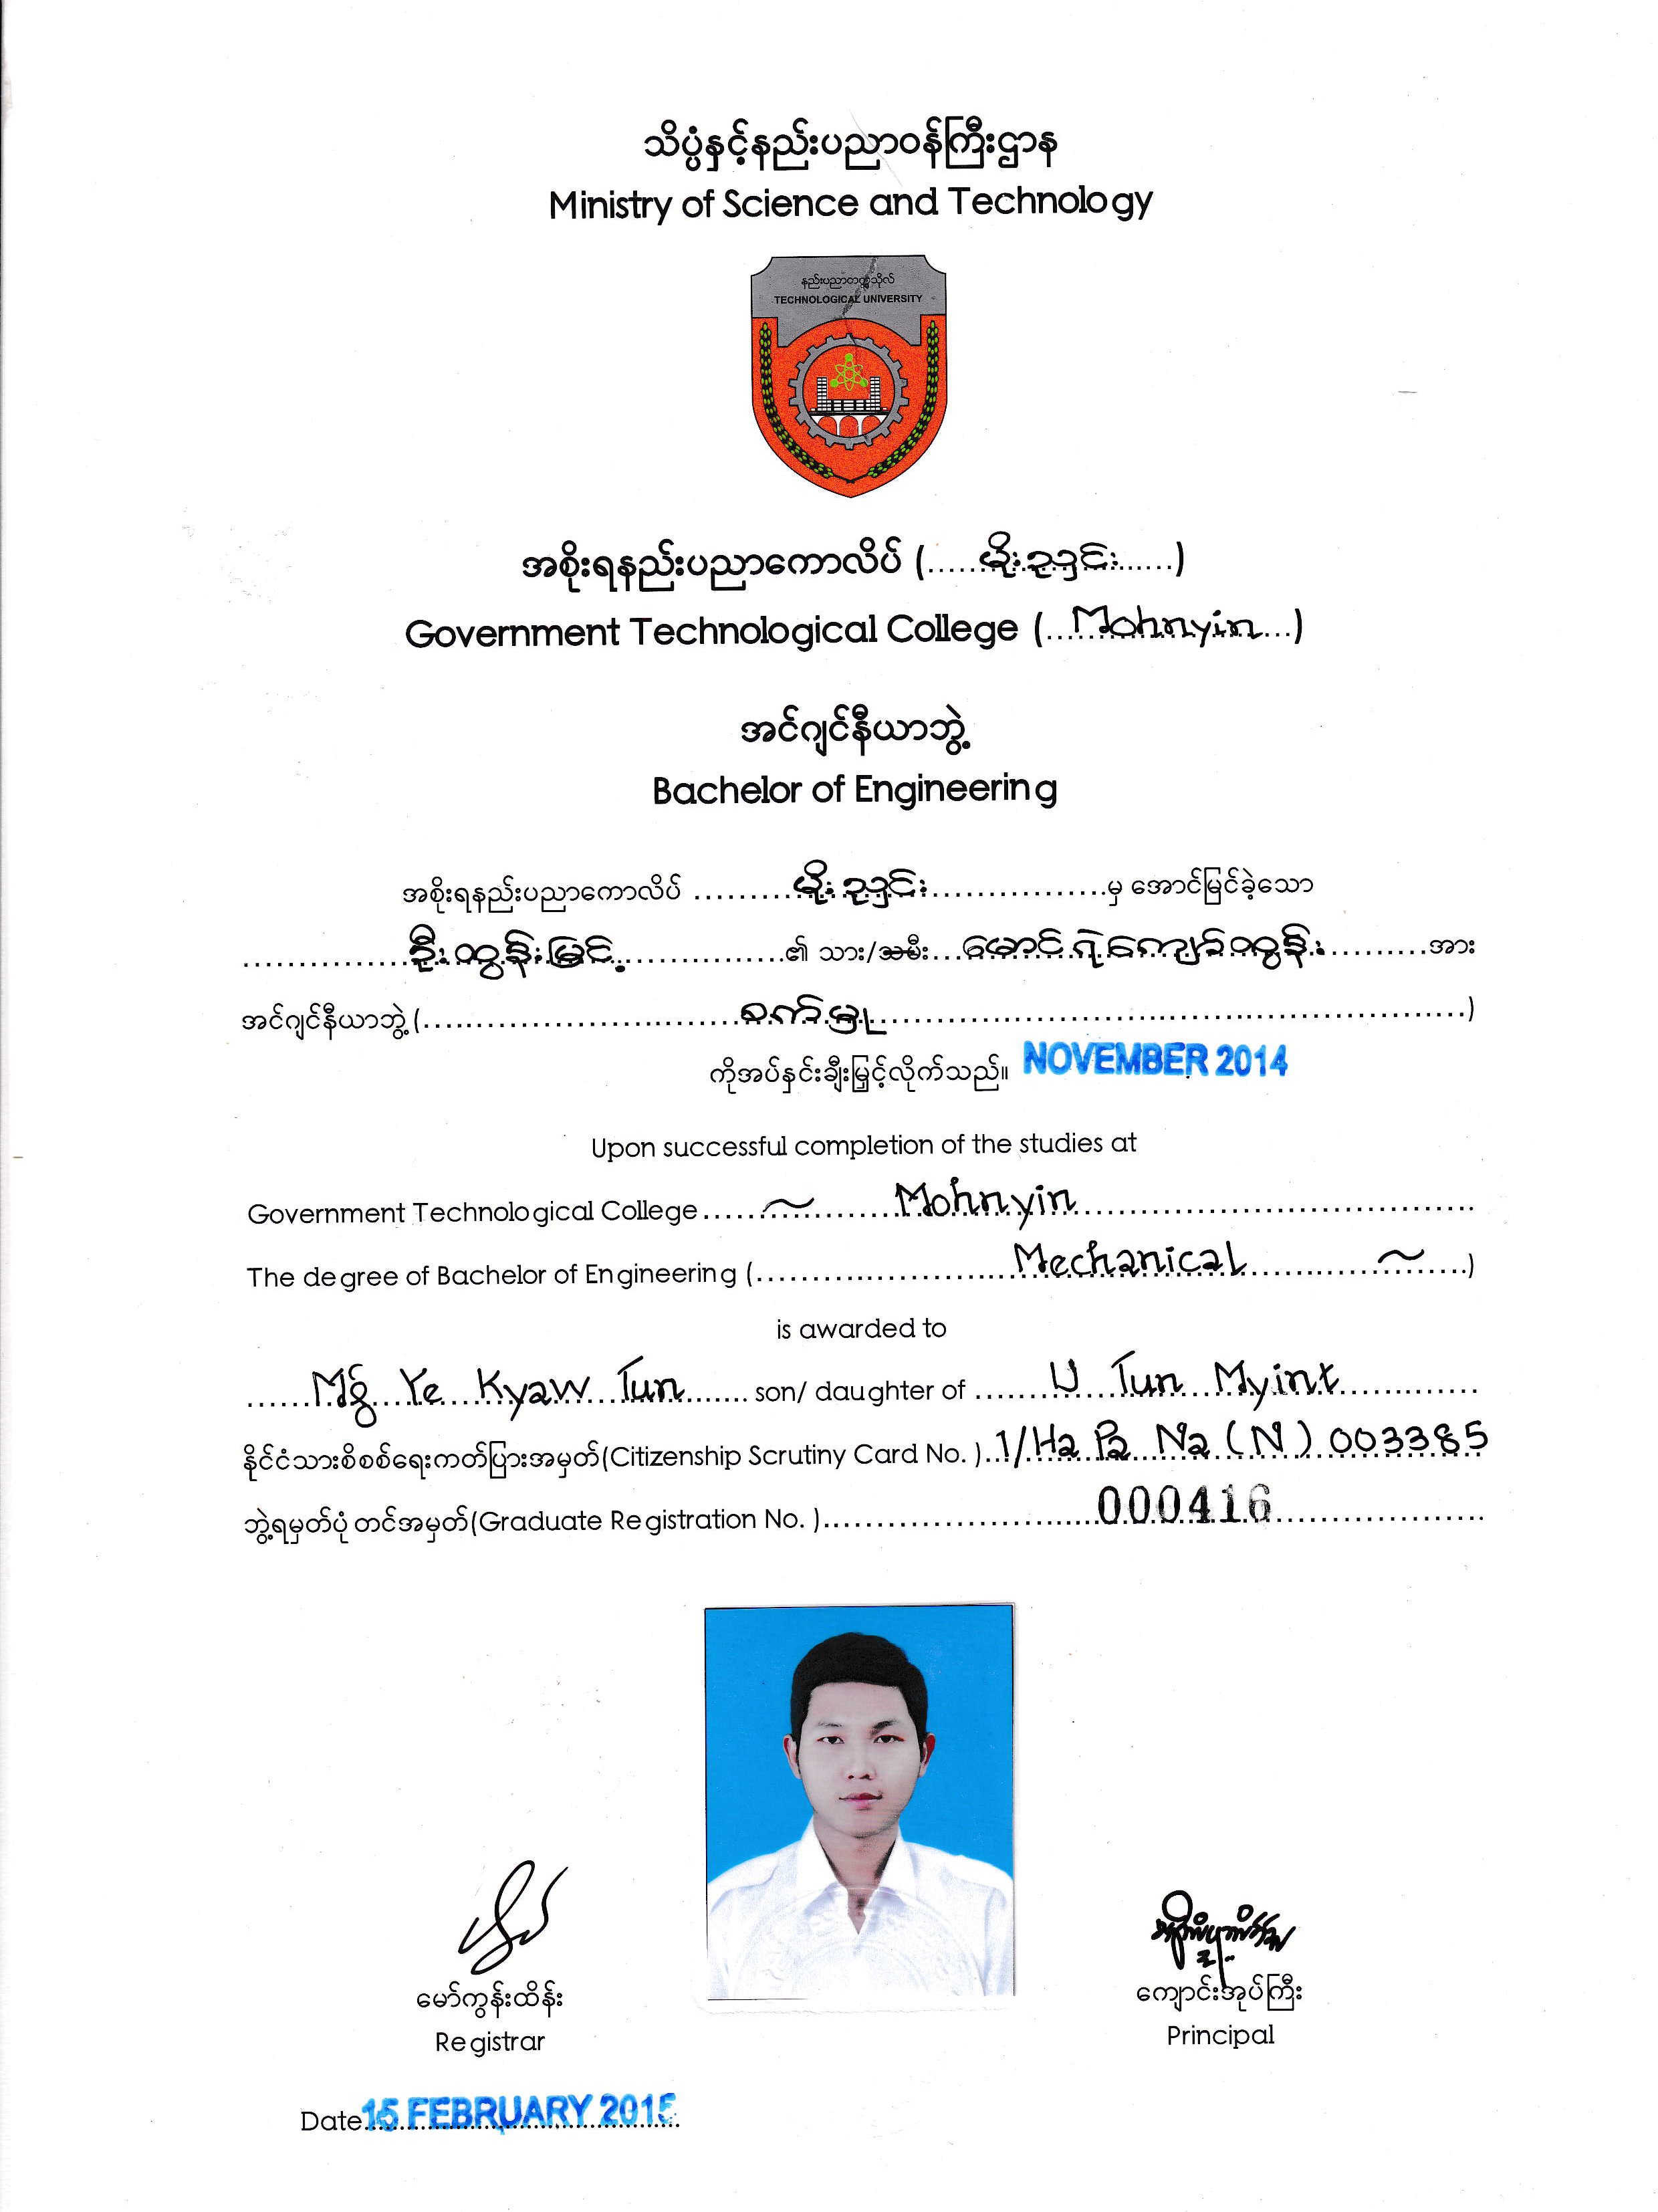 သိပ္ပံနှင့်နည်းပညာဝန်ကြီးဌာန
Ministry of Science and Technology
နည်းပညာတက္ကသိုလ်
TECHNOLOGICAL UNIVERSITY
အစိုးရနည်းပညာကောလိပ် (......မိုးညှင်း......)
Government Technological College (...Mohnyin...)
အင်ဂျင်နီယာဘွဲ့
Bachelor of Engineering
အစိုးရနည်းပညာကောလိပ် ..........မိုးညှင်း..........မှ အောင်မြင်ခဲ့သော
..........ဦးထွန်းမြင့်..........၏ သား/သမီး...မောင်ရဲကျော်ထွန်း..........အား
အင်ဂျင်နီယာဘွဲ့ (..........စက်မှု..........)
ကိုအပ်နှင်းချီးမြှင့်လိုက်သည်။ NOVEMBER 2014
Upon successful completion of the studies at
Government Technological College ......~...... Mohnyin..........
The degree of Bachelor of Engineering (..........Mechanical ....~....)
is awarded to
......Mg Ye Kyaw Tun...... son/ daughter of ......U Tun Myint..........
နိုင်ငံသားစိစစ်ရေးကတ်ပြားအမှတ်(Citizenship Scrutiny Card No. )..1/Ha Pa Na (N) 003385
ဘွဲ့ရမှတ်ပုံတင်အမှတ်(Graduate Registration No. )..........000416..........
မော်ကွန်းထိန်း
Registrar
ကျောင်းအုပ်ကြီး
Principal
Date 15 FEBRUARY 2015